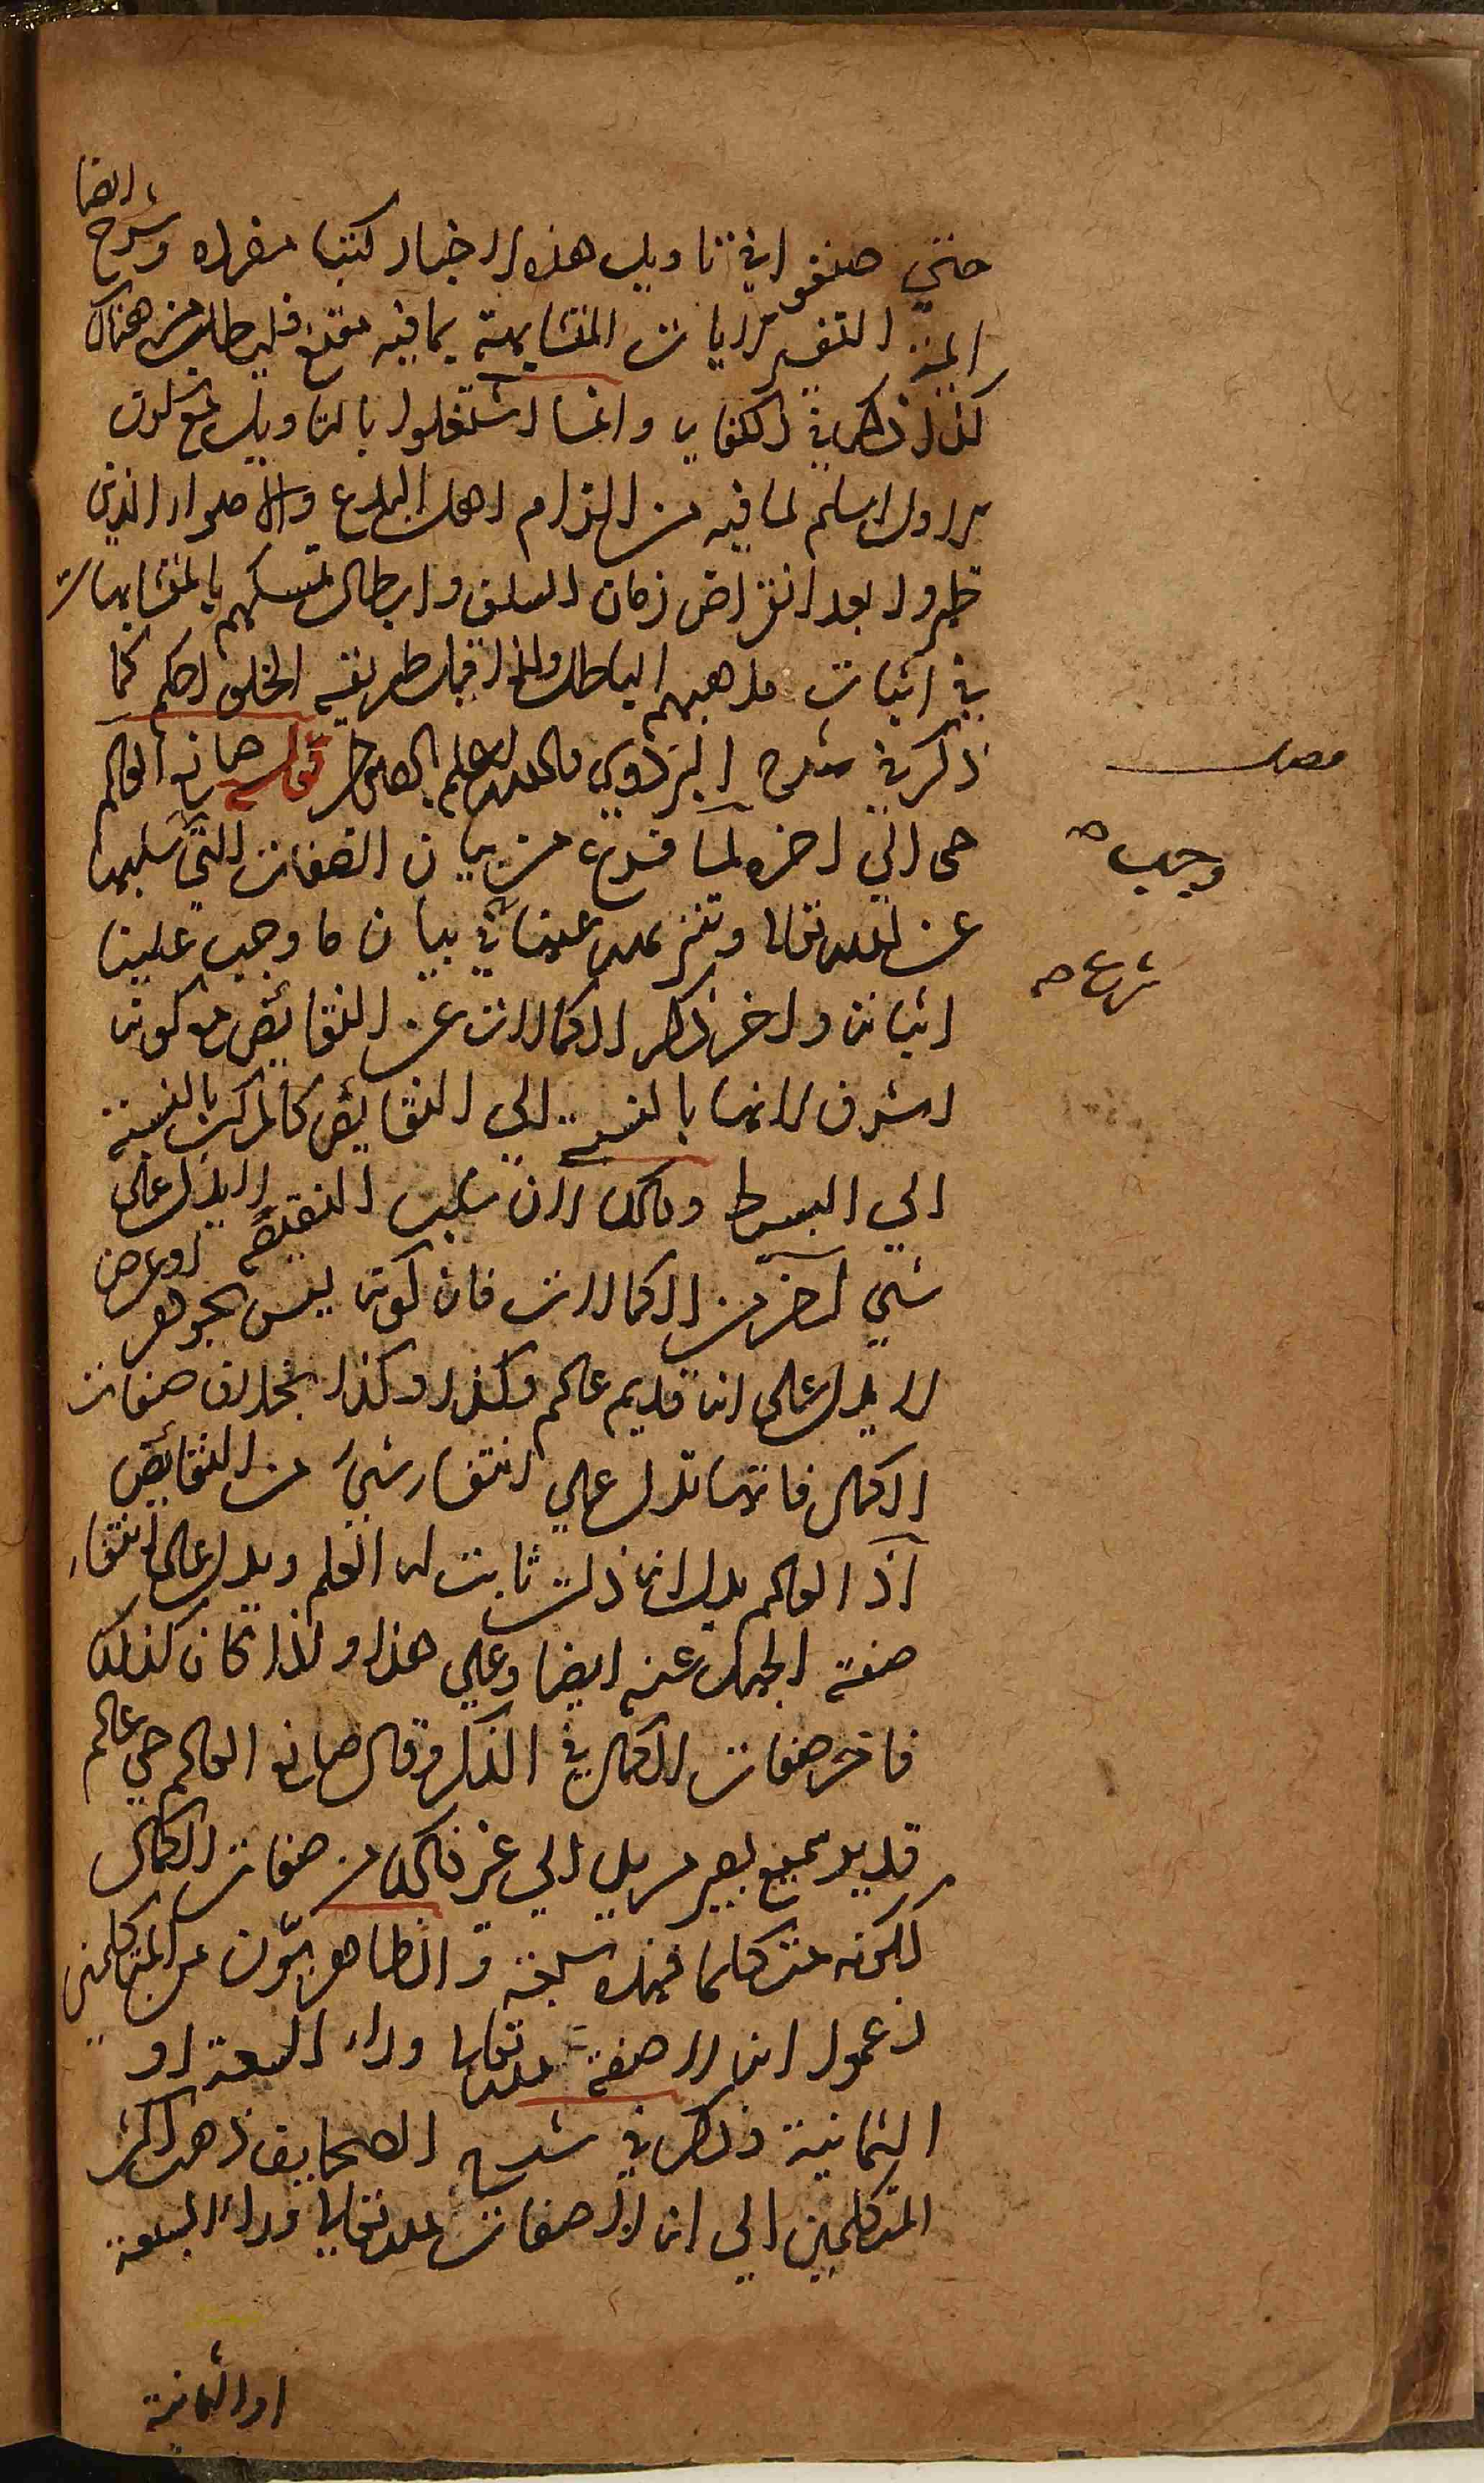 حتي صنفوا في تاويل هذه الاخبار كتبا مفردة وشرح ايضا
ايمة التفسير الايات المتشابهة بما فيه مقنع فليطلب من هناك
كذا ذكر في الكفاية وانما اشتغلوا بالتاويل مع كون
الاول اسلم لما فيه من الزام اهل البدع والاهواء الذين
ظهروا بعد انقراض زمان السلف وابطال تمسكهم بالمتشابهات
في اثبات مذاهبهم الباطل ولذا قيل طريقة الخلف احكم كما
ذكر في شرح البزدوي والله اعلم بالصواب قوله صانع العالم
حي الي اخره لما فرغ من بيان الصفات التي سلبها
عن الله تعالي وتنزيهه شرع في بيان ما وجب علينا
اثباته واخر ذكر الكمالات عن النقائص مع كونه
اشرف لانها بالنسبة الي النقائص كالمركب بالنسبة
الي البسيط وذلك لان سلب النقيصة لا يدل علي
شيء آخر من الكمالات فان كونه ليس بجوهر او عرض
لا يدل علي انه قديم عالم وكذا وكذا بخلاف صفات
الكمال فانها تدل علي انتفاء شيء من النقائص
اذ العالم يدل انه ذات ثابت له العلم ويدل علي انتفاء
صفة الجهل عنه ايضا وعلي هذا ولذا كان كذلك
فاخر صفات الكمال في الذكر وقال صانع العالم حي عالم
قدير سميع بصير مريد الي غير ذلك من صفات الكمال
لكونه متكلما فهذه سبعة والظاهريون من المتكلمين
زعموا انه لا صفة لله تعالي وراء السبعة او
الثمانية ذكر في شرح الصحايف ذهب اكثر
المتكلمين الي انه لا صفات لله تعالي وراء السبعة
او الثمانية
وجب صح
شرع صح